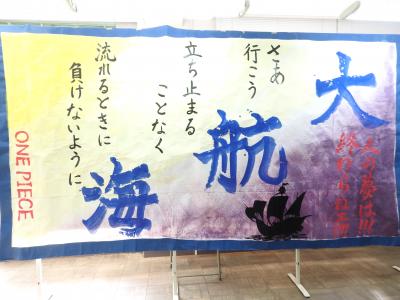 大航海
人の夢は!!!
終わらねェ!!!
さあ
行こう
立ち止まる
ことなく
流れるときに
負けないように
ONE PIECE